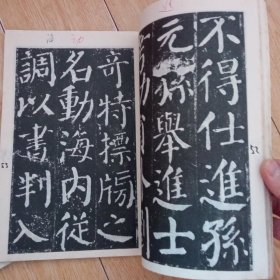 不得仕進孫
元孫舉進士
奇特摽牓之
名動海内從
調以書判入
52
53